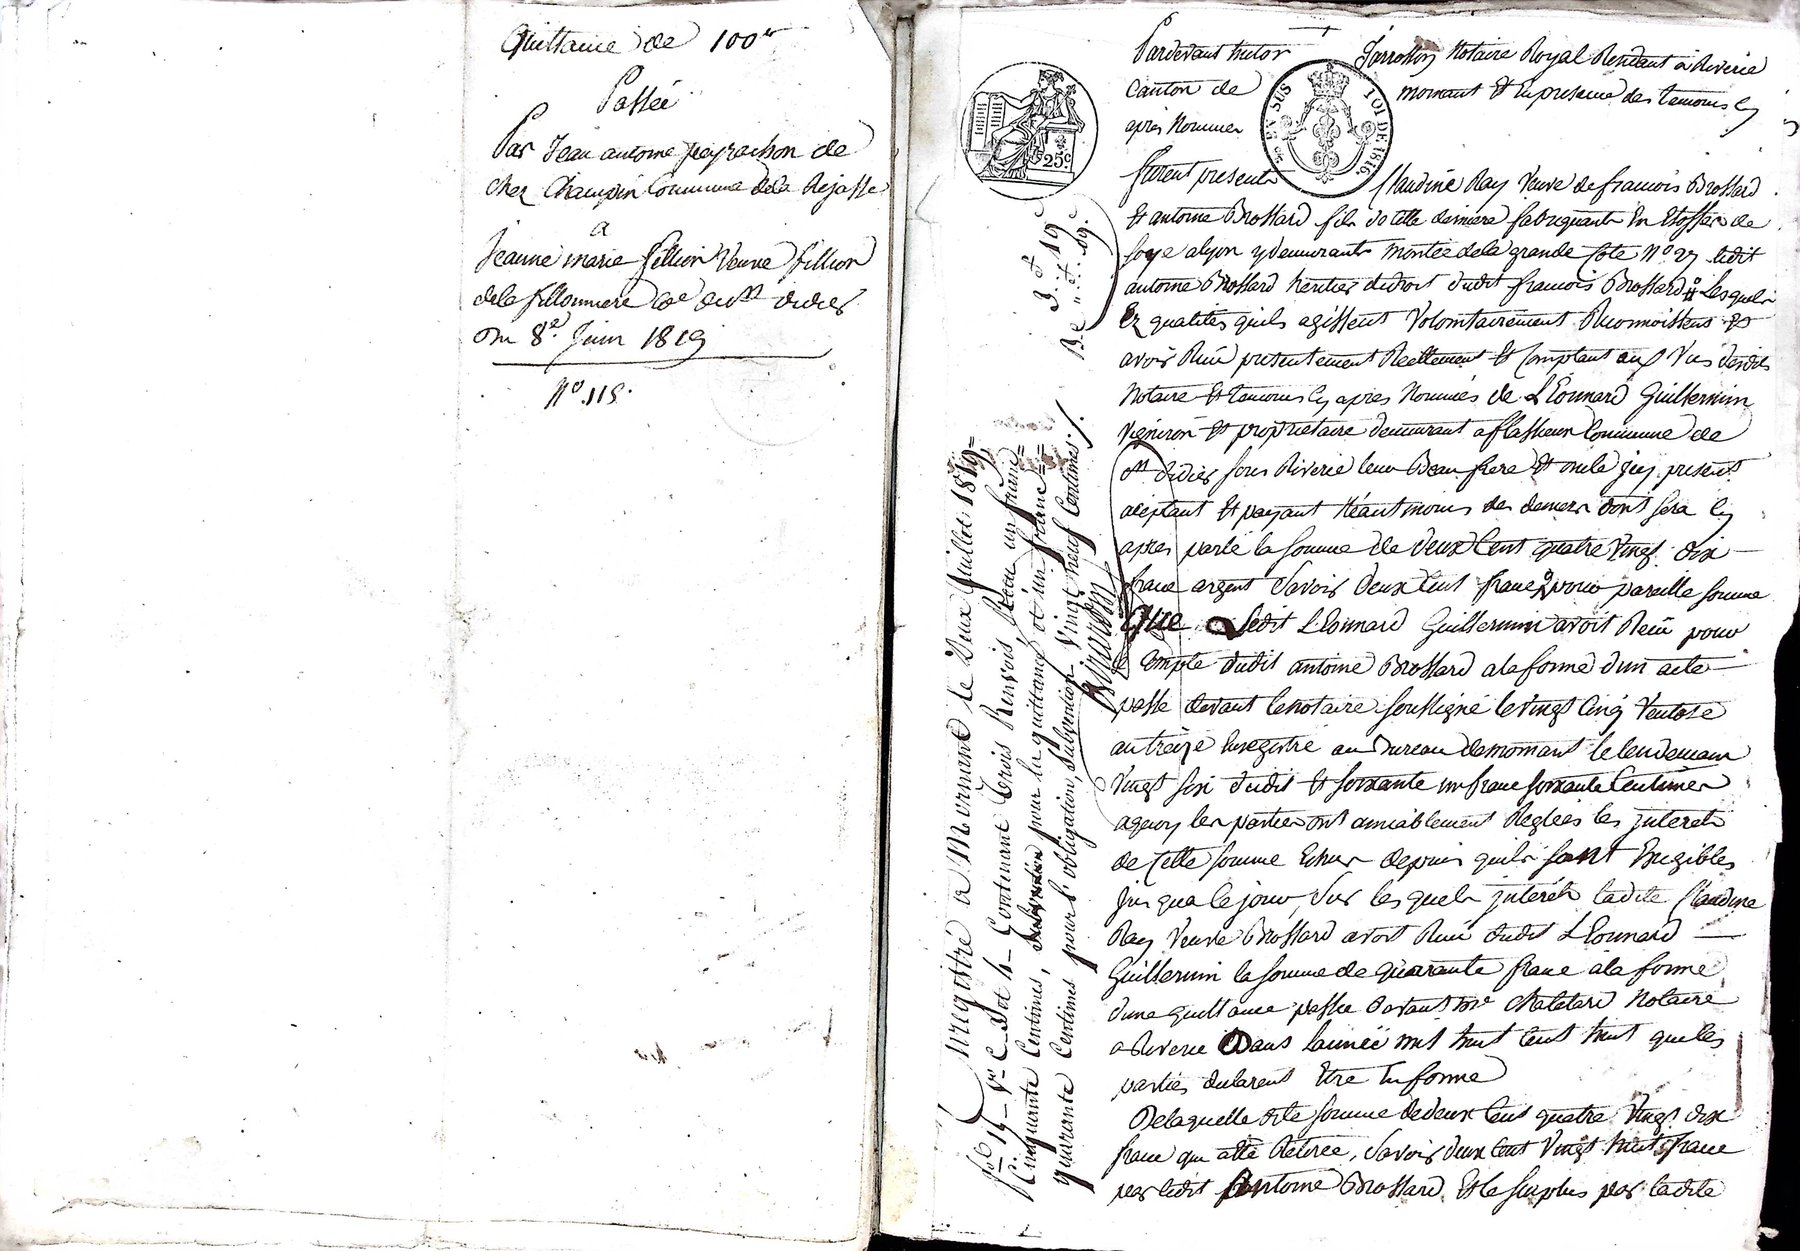 Quittance de 100 fr
Passée
Par Jean antoine peyrachon de
chez Champin Commune de la Rajasse
a
Jeanne marie fillion Veuve fillion
dela fillonniere Cne de st didier
Du 8e. Juin 1819
N° 115.
Pardevant hector Jarrosson Notaire Royal Residant a Riverie
Canton de mornant Et En presence des temoins Cy
apres Nommes
furent presents Claudine Ray Veuve de francois Brossard
Et antoine Brossard fils de cette derniere fabriquants En Etoffes de
soye a lyon y demeurants montée dela grande Cote N° 27 ledit
antoine Brossard heritier de droit dudit francois Brossard Lesquels
Ez qualites quils agissent Volontairement Reconnoissent
avoir Recu presentement Reellement Et Comptant aux Vus desdits
Notaire Et temoins Cy apres Nommés de LEonnard Guillermin
Vigneron Et proprietaire demeurant a flacheux Commune de
st didier sous Riverie leur Beau frere Et oncle Jcy present
aceptant Et payant Néantmoins des deniers dont sera Cy
apres parlé la somme de deux Cent quatre Vingt dix
franc argent Savoir deux Cent franc pour pareille somme
Que Ledit LEonnard Guillermin avoit Recu pour
le Compte dudit antoine Brossard a la forme dun acte
passé devant le notaire soussigné le vingt Cinq Ventose
an treize Enregistré au Bureau de mornant le lendemain
Vingt six dudit Et soixante un franc soixante Centimes
a quoy les parties ont amiablement Reglées les jnterets
de Cette somme Echus depuis quils sont Exigibles
Jusqua Ce jour, Sur les quels jnterets ladite Claudine
Ray Veuve Brossard avoit Recu dudit LEonnard
Guillermin la somme de quarante franc a la forme
dune quittance passée Devant me Chatelard Notaire
a Riverie Dans lannée mil huit Cent huit que les
parties declarent Etre En forme
De laquelle dite somme de deux Cent quatre Vingt dix
franc qui a Eté Retirée, Savoir deux Cent Vingt huit franc
par ledit Antoine Brossard Et le surplus par ladite
Enregistré à Mornant le Deux Juillet 1819
fol. 15 Contenant Trois Renvois, Reçu un franc
Cinquante Centimes, pour la quittance et un franc
quarante Centimes pour l'obligation, Subvention Vingt neuf Centimes
3 .. 19
EN SUS
LOI DE 1816
25 c